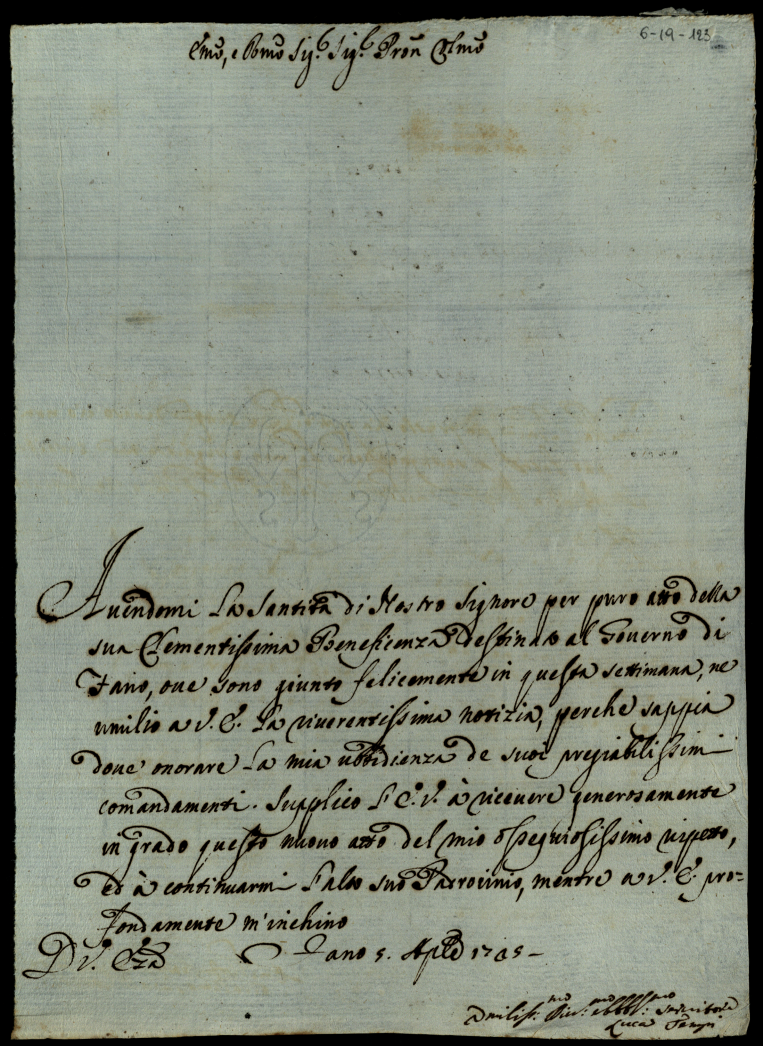 6-19-123
Emo, e Rmo Sig.r Sig.r Pron Colmo
Auendomi La Santità di Nostro Signore per puro atto della
sua Clementissima Beneficenza destinato al Gouerno di
Fano, oue sono giunto felicemente in questa settimana, ne
umilio a V. E. La riuerentissima notizia, perche sappia
doue onorare La mia ubbidienza de suoi pregiabilissimi
comandamenti. Supplico L'E. V. à riceuere generosamente
in grado questo nuouo atto del mio ossequiosissimo rispetto,
ed à continuarmi L'alto suo Patrocinio, mentre a V. E. pro=
fondamente m'inchino
D V. Eza Fano 5. Aple
Luca Tempi